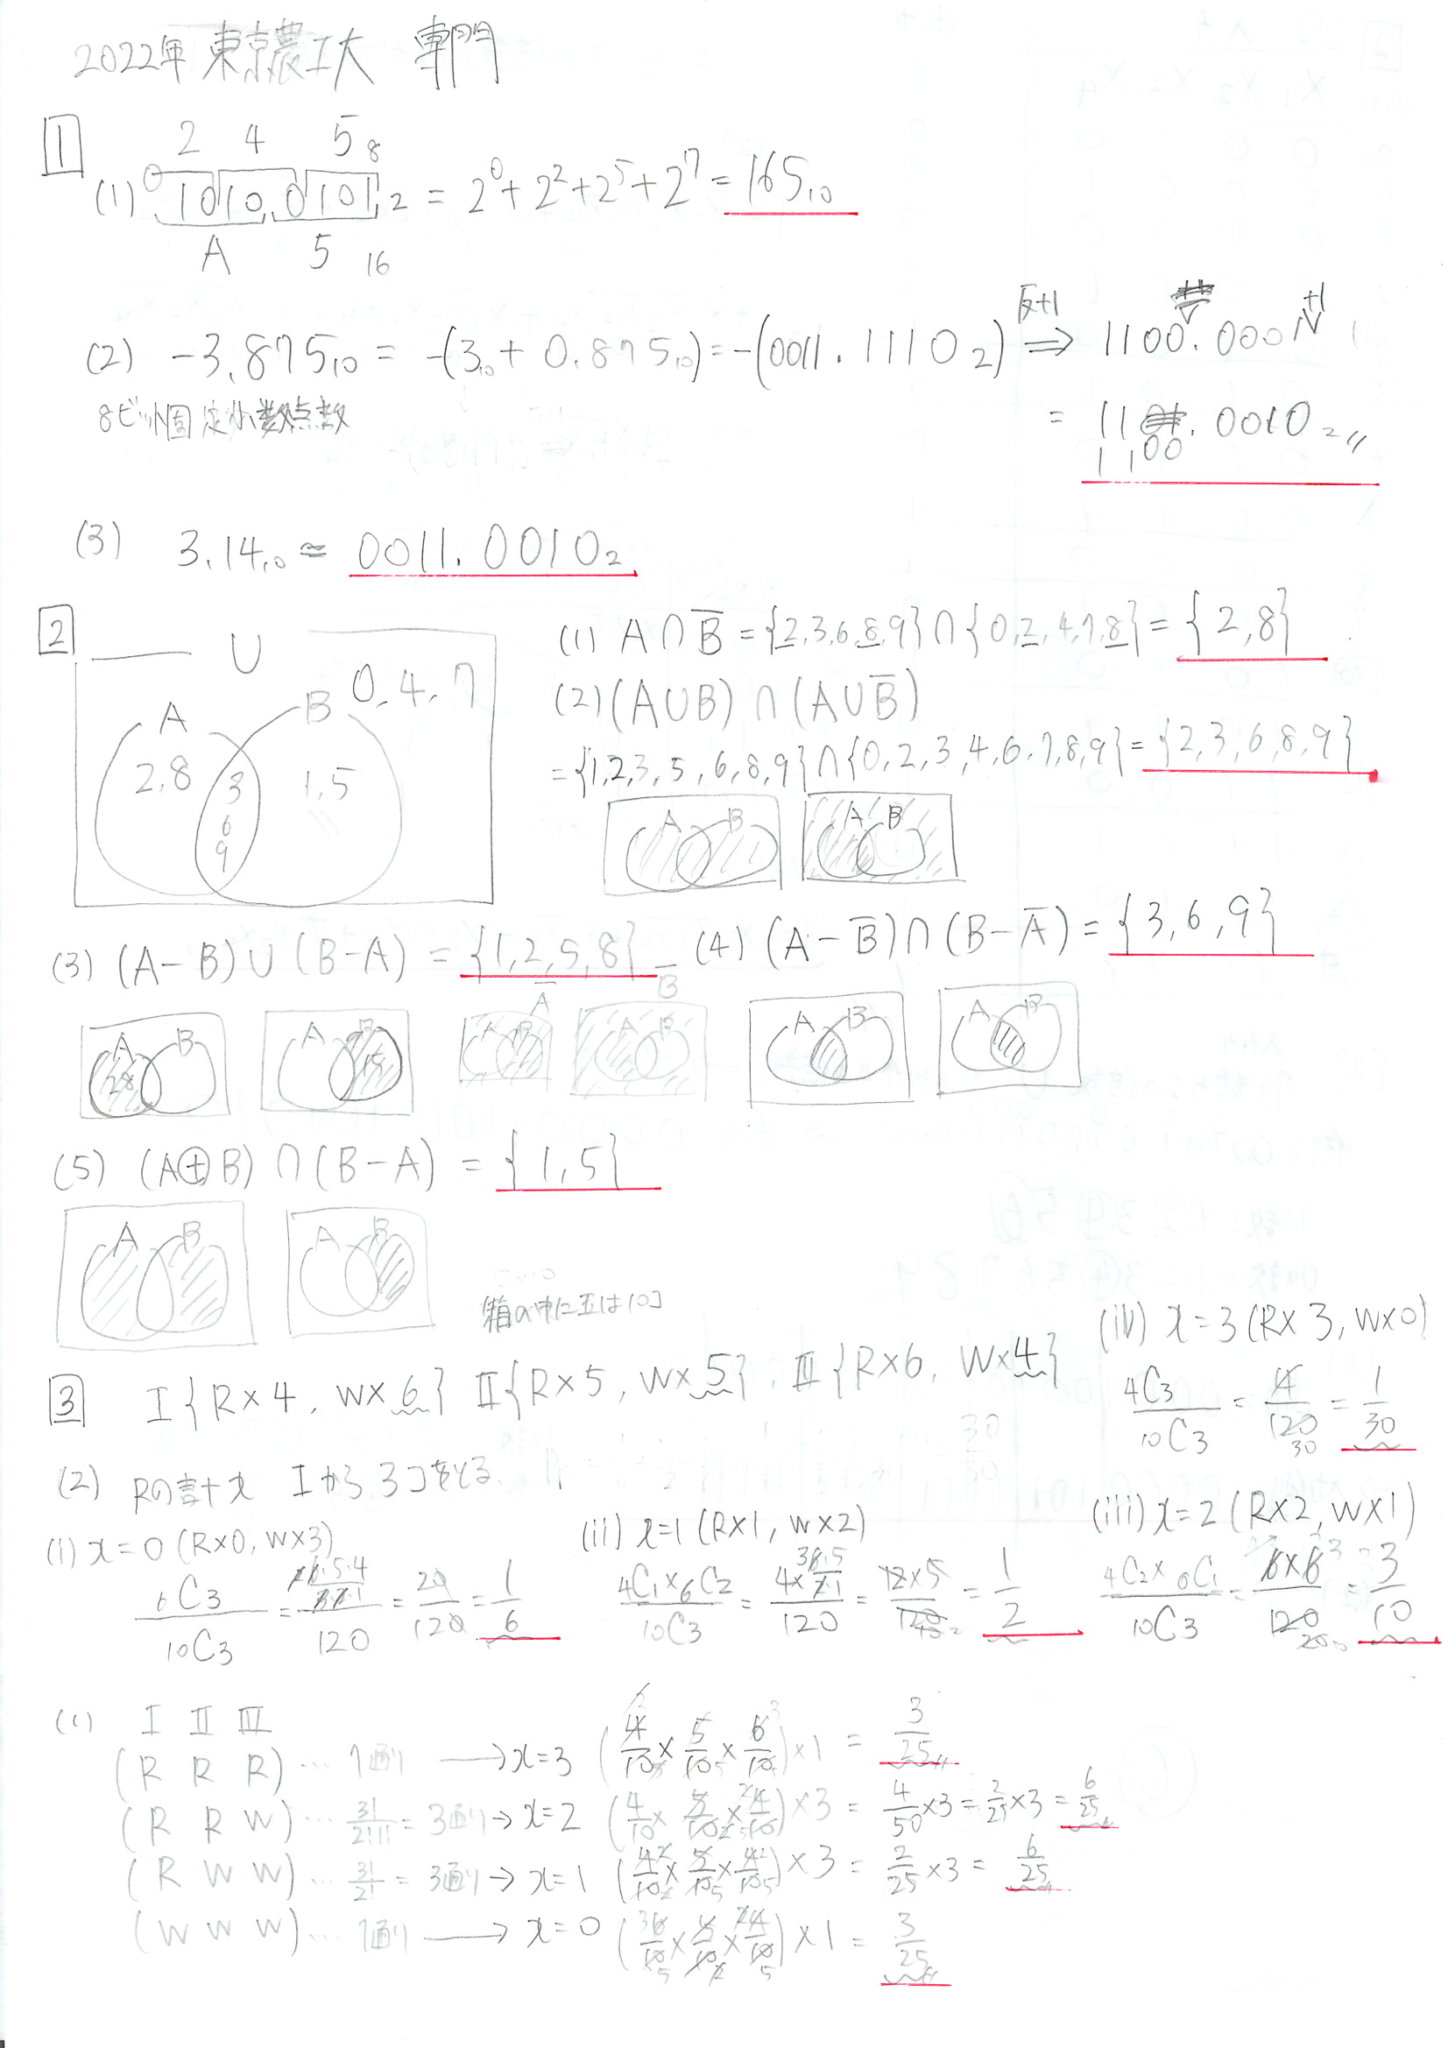 2022年 東京農工大 専門
1
2 4 5 8
(1) 0 10100101 2 = 2^0 + 2^2 + 2^5 + 2^7 = 165 10
A 5 16
(2) -3.875 10 = -(3 10 + 0.875 10) = -(0011.1110 2) 反+1 ⇒ 1100.0001 +1
8ビット固定小数点数
= 1100.0010 2
1 1 00
(3) 3.14 10 ≈ 0011.0010 2
2
U
A B 0, 4, 7
2, 8 3 6 9 1, 5
(1) A∩B̅ = {2,3,6,8,9}∩{0,2,4,7,8} = {2,8}
(2) (A∪B)∩(A∪B̅)
= {1,2,3,5,6,8,9}∩{0,2,3,4,6,7,8,9} = {2,3,6,8,9}
A B A B
(3) (A-B)∪(B-A) = {1,2,5,8} (4) (A-B̅)∩(B-A̅) = {3,6,9}
A̅ B̅
A B 28 A B 15 A B A B A B A B
(5) (A⊕B)∩(B-A) = {1,5}
A B A B
箱の中に玉は10コ
3 I{R×4, W×6} II{R×5, W×5}, III{R×6, W×4}
(2) Rの計x Iから3コをとる
(i) x=0 (R×0, W×3)
6C3/10C3 = (6·5·4/3·2·1)/120 = 20/120 = 1/6
(ii) x=1 (R×1, W×2)
4C1×6C2/10C3 = (4×6·5/2·1)/120 = 12×5/120 = 1/2
(iii) x=2 (R×2, W×1)
4C2×6C1/10C3 = 6×6/120 = 3/10
(iv) x=3 (R×3, W×0)
4C3/10C3 = 4/120 = 1/30
(1) I II III
(R R R) … 1通り → x=3 (4/10×5/10×6/10)×1 = 3/25
(R R W) … 3!/2!1! = 3通り → x=2 (4/10×5/10×4/10)×3 = 4/50×3 = 2/25×3 = 6/25
(R W W) … 3!/2! = 3通り → x=1 (4/10×5/10×4/10)×3 = 2/25×3 = 6/25
(W W W) … 1通り → x=0 (6/10×5/10×4/10)×1 = 3/25